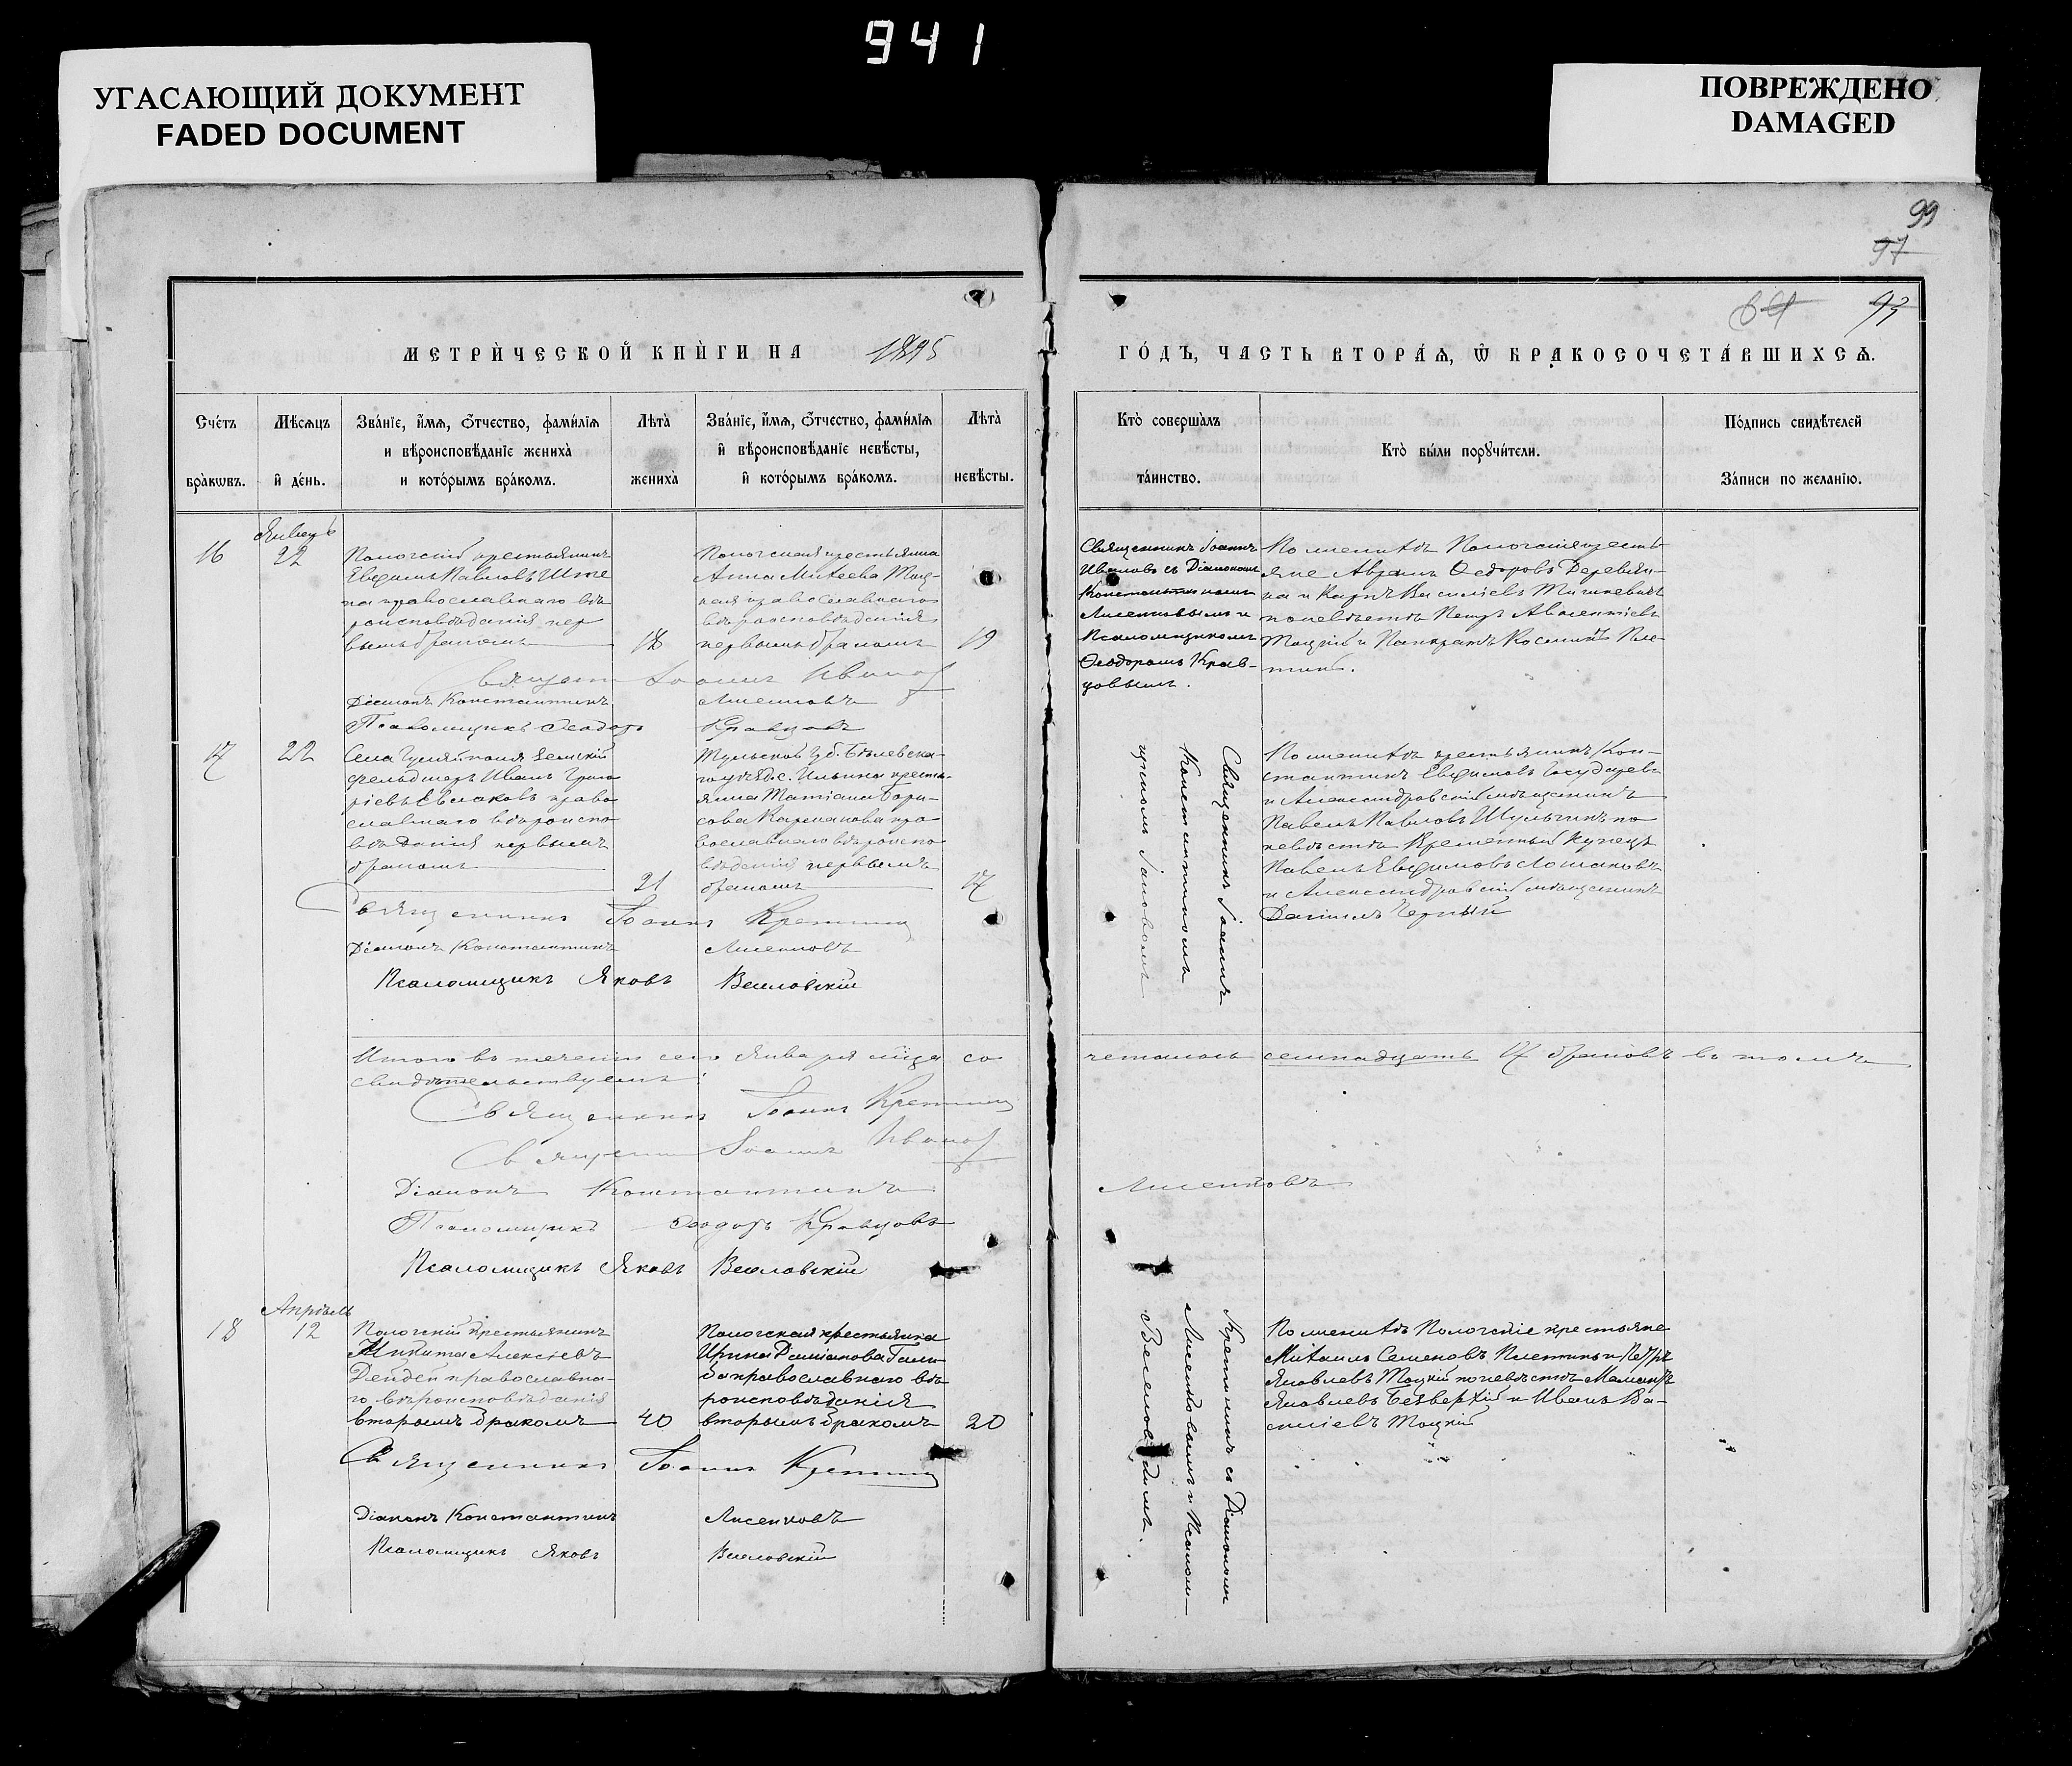 941
УГАСАЮЩИЙ ДОКУМЕНТ
FADED DOCUMENT
ПОВРЕЖДЕНО
DAMAGED
99
97
МЕТРИ́ЧЕСКОЙ КНИ́ГИ НА 1895
ГО́ДЪ, ЧАСТЬ ВТОРА́Ѧ, Ѽ БРАКОСОЧЕТА́ВШИХСѦ.
Сче́тъ бра́кѡвъ.
Мѣ́сѧцъ и҆ де́нь.
Зва́нїе, и҆́мѧ, ѻ҆́тчество, фами́лїѧ
и вѣроисповѣ́данїе жениха̀
и кото́рымъ бра́комъ.
Лѣта̀ жениха̀
Зва́нїе, и҆́мѧ, ѻ҆́тчество, фами́лїѧ
и҆ вѣроисповѣ́данїе невѣ́сты,
и҆ кото́рымъ бра́комъ.
Лѣта̀ невѣ́сты.
Кто̀ соверша́лъ
та́инство.
Кто̀ бы́ли порꙋчи́тели.
По́дпись свидѣ́телей
За́писи по жела́нїю.
16
Январь
22
Пологскій крестьянинъ
Евфимъ Павловъ
православнаго вѣ-
роисповѣданія пер
вымъ бракомъ
18
Пологская крестьянка
Анна Матѳеева Тоц-
кая православнаго
вѣроисповѣданія
первымъ бракомъ
19
Священникъ Іоаннъ
Ивановъ съ Діакономъ
Константиномъ
Лисенковымъ и
Псаломщикомъ
Ѳеодоромъ Крав-
цовымъ.
По женихѣ Пологскіе кресть-
яне Аврамъ Ѳедоровъ Деревян-
ка и Карпъ Василіевъ
по невѣстѣ Петръ
Тоцкій и Панкратъ Косминъ Пле-
тинь.
Священ Іоаннъ Иванов
Діаконъ Константинъ Лисенковъ
Псаломщикъ Ѳеодоръ Кравцовъ
17
22
Села Гуляйполя Земскій
фельдшеръ Иванъ Григо
ріевъ право
славнаго вѣроиспо
вѣданія первымъ
бракомъ
21
Тульской губ. Бѣлевска-
го уѣзд. с. Ильина кресть-
янка Татіана Бори-
сова пра
вославнаго вѣроиспо
вѣданія первымъ
бракомъ
17
Священникъ Іоаннъ
Константиномъ
Іаковомъ
По женихѣ крестьянинъ Кон-
стантинъ Евфимовъ Государевъ
и Александровскій мѣщанинъ
Павелъ Павловъ Шульгинъ по
невѣстѣ Временный Купецъ
Павелъ Евфимовъ
и Александровскій мѣщанинъ
Даніилъ Черный
Священникъ Іоаннъ Кретинин
Діаконъ Константинъ Лисенковъ
Псаломщикъ Яковъ Веселовскій
Итого въ теченіи сего января мѣца со
четалось семнадцать 17 браковъ въ томъ
свидѣтельствуемъ:
Священникъ Іоаннъ Кретинин
Священ Іоаннъ Иванов
Діаконъ Константинъ Лисенковъ
Псаломщикъ Ѳеодоръ Кравцовъ
Псаломщикъ Яковъ Веселовскій
18
Апрѣль
12
Пологскій крестьянинъ
Никита Алексѣевъ
Дейдей православна-
го вѣроисповѣданія
вторымъ бракомъ
40
Пологская крестьянка
Ирина Даміанова Гали-
ба православнаго вѣ-
роисповѣданія
вторымъ бракомъ
20
Кретининъ съ Діакономъ
Лисенковымъ и Псалом-
Веселовскимъ.
По женихѣ Пологскіе крестьяне
Михаилъ Семеновъ Плетинь и Петръ
Яковлевъ Тоцкій по невѣстѣ
Яковлевъ Безверхій и Иванъ Ва-
силіевъ Тоцкій
Священникъ Іоаннъ Кретинин
Діаконъ Константинъ Лисенковъ
Псаломщикъ Яковъ Веселовскій